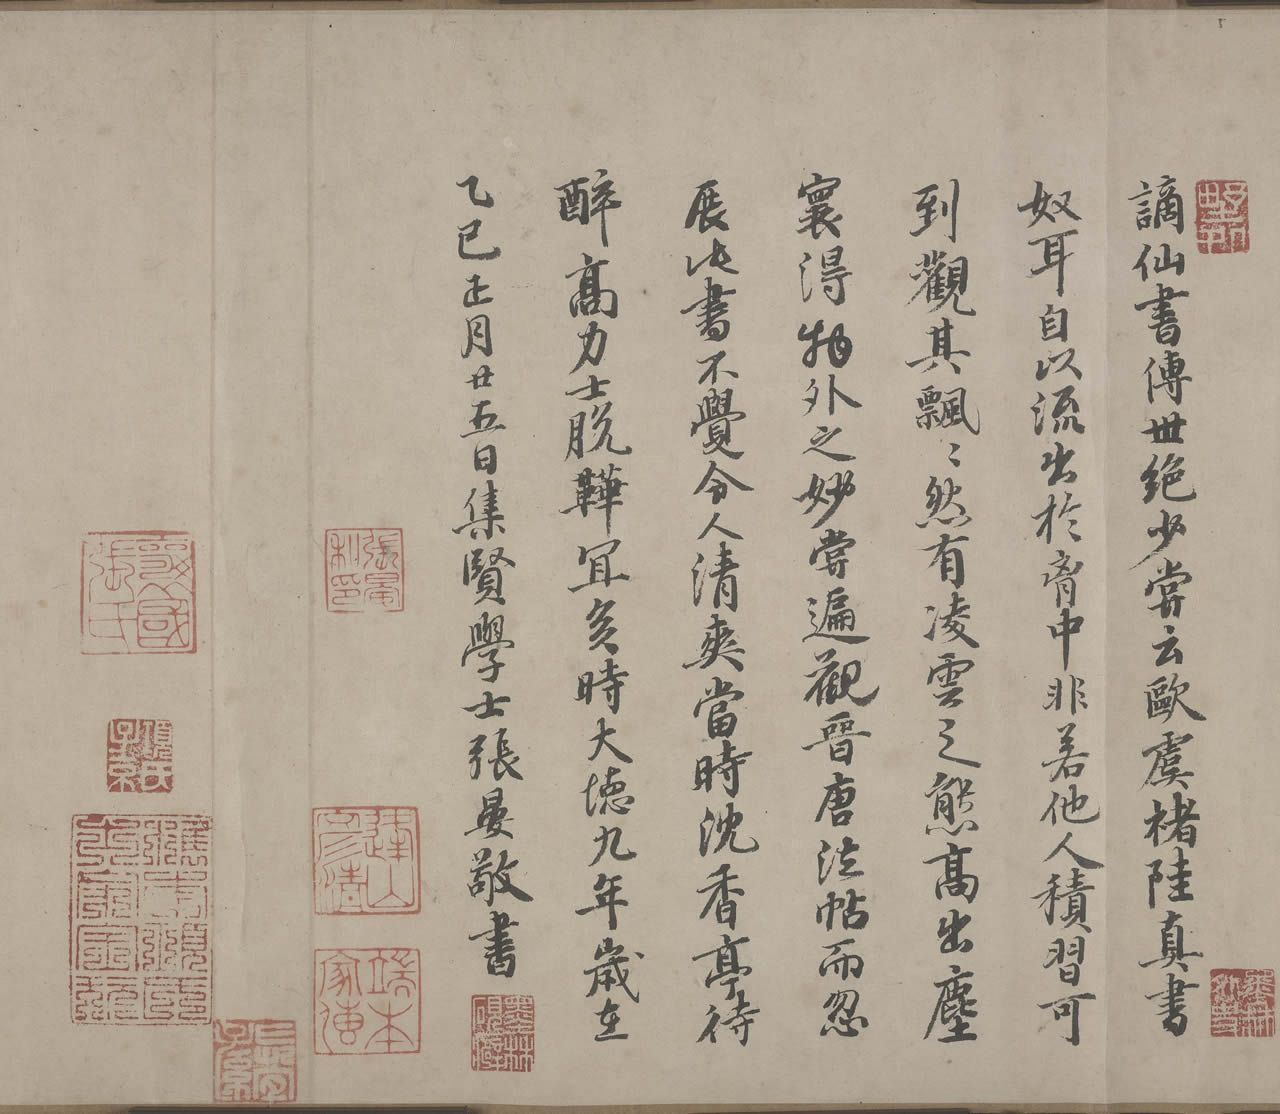 謫仙書傳世絕少嘗云歐虞褚陸真書
奴耳自以流出於胷中非若他人積習可
到觀其飄〻然有凌雲之態高出塵
寰得物外之妙嘗遍觀晉唐法帖而忽
展此書不覺令人清爽當時沈香亭待
醉高力士脫鞾冝亥時大德九年歲在
乙巳正月廿五日集賢學士張晏敬書
張晏私印
襄國張氏
項氏子京